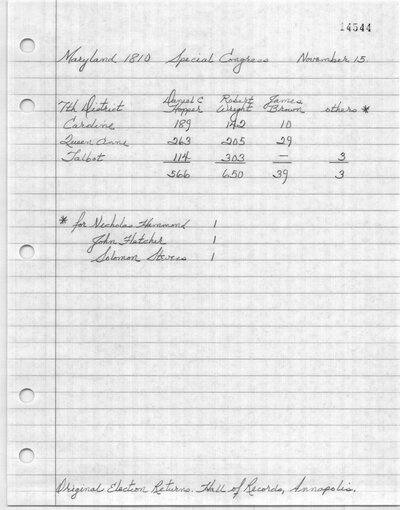 14544
Maryland 1810 Special Congress November 15
Daniel C Robert James
7th District Hopper Wright Brown others *
Caroline 189 142 10
Queen Anne 263 205 29
Talbot 114 303 — 3
566 650 39 3
* for Nicholas Hammond 1
John Fletcher 1
Solomon Stevens 1
Original Election Returns. Hall of Records, Annapolis.